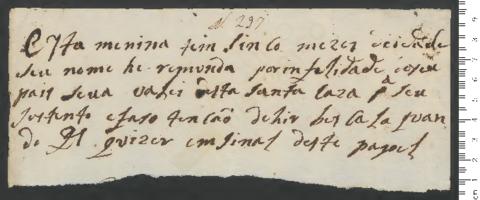 N. 297
Esta menina tem sinco mezes de idade
seu nome he remunda por infelidade de seu
pais se ua valer desta Santa Caza pa seu
sostento e faso tencão de hir busCala quan
do Ds quizer em sinal deste papel